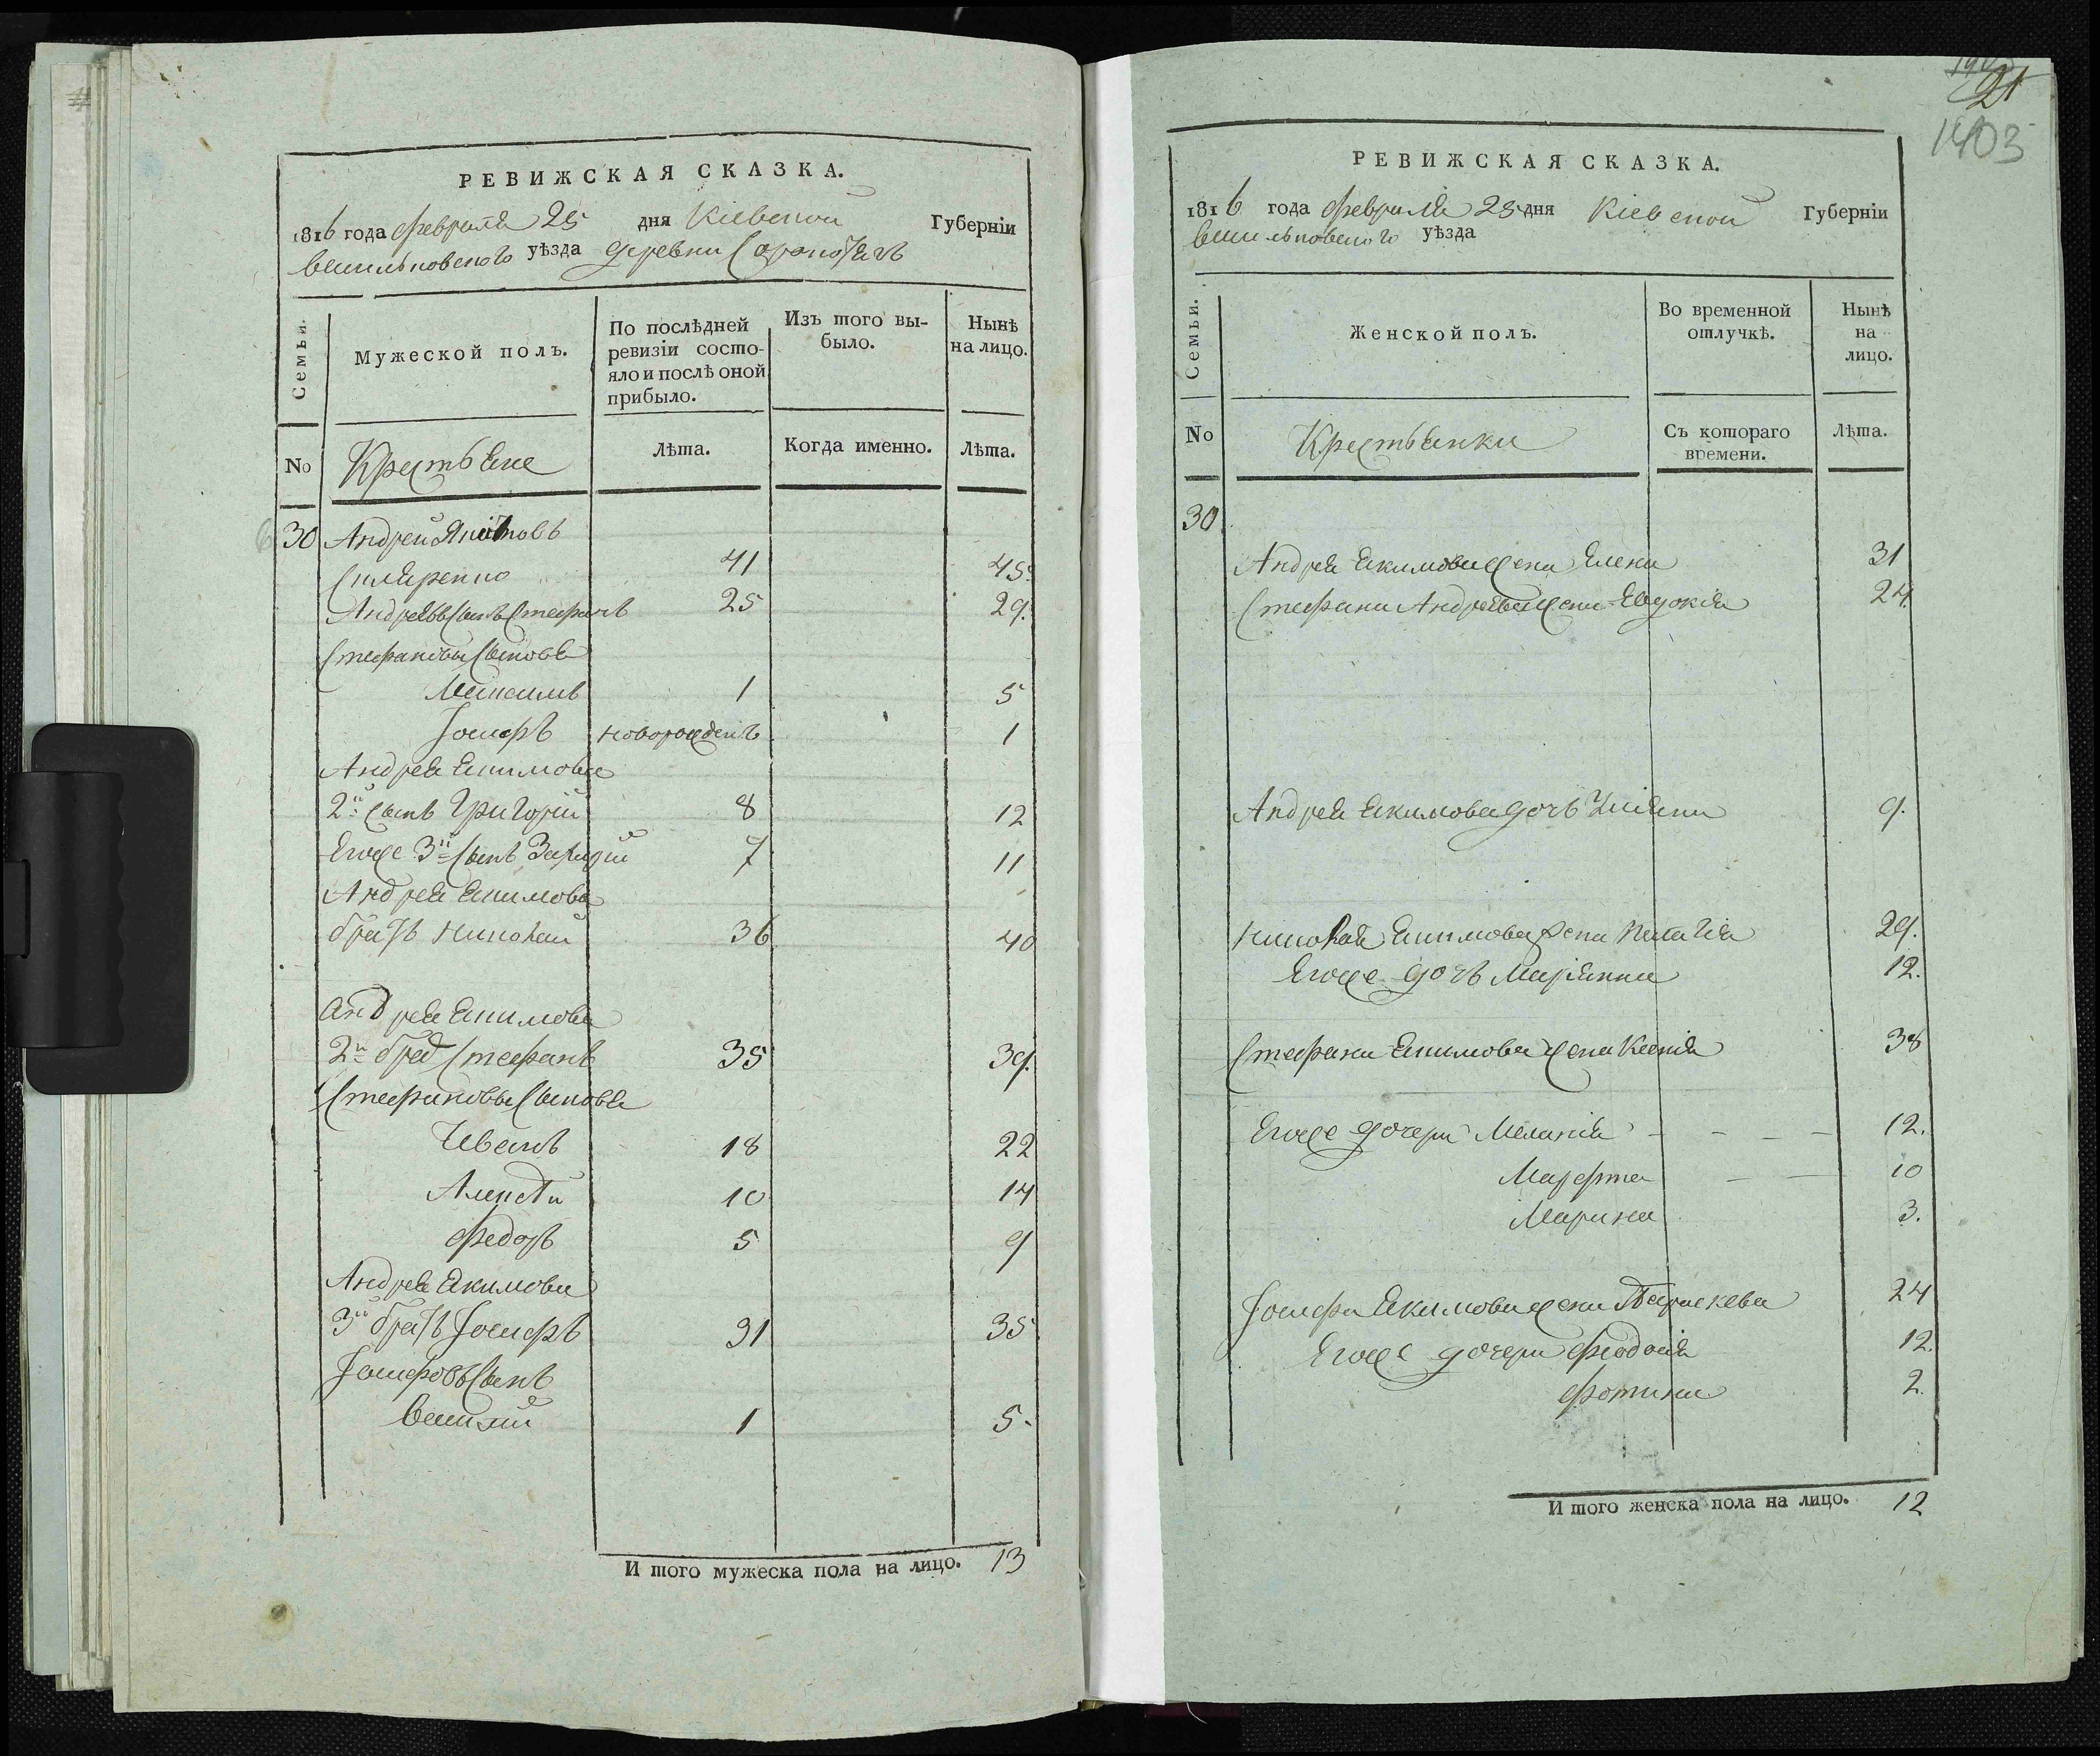 РЕВИЖСКАЯ СКАЗКА.
1816 года февраля 25 дня Кіевской Губерніи
Васильковского уѣзда деревни Соротягъ
Семьи.
Мужеской полъ.
По послѣдней ревизіи состо-
яло и послѣ оной
прибыло.
Изъ того вы-
было.
Нынѣ
на лицо.
No
Крестьяне
Лѣта.
Когда именно.
Лѣта.
30 Андрей Якимовъ
Скляренко 41 45.
Андреевъ Сынъ Стефанъ 25 29.
Стефановы Сыновья
Михаилъ 1 5
Іосифъ новорожденъ 1
Андрея Якимова
2й Сынъ Григорій 8 12
Егоже 3й Сынъ 7 11
Андрея Якимова
братъ Николай 36 40
Андрея Якимова
2й брат Стефанъ 35 39.
Стефановы Сыновья
Иванъ 18 22
Алексѣй 10 14
Федоръ 5 9
Андрея Якимова
3й братъ Іосифъ 31 35
Іосифовъ Сынъ
Василій 1 5.
И того мужеска пола на лицо. 13
21
1403
РЕВИЖСКАЯ СКАЗКА.
1816 года февраля 25 дня Кіевской Губерніи
Васильковского уѣзда
Семьи.
Женской полъ.
Во временной
отлучкѣ.
Нынѣ
на
лицо.
No
Крестьянки
Съ котораго
времени.
Лѣта.
30
Андрея Якимова жена Елена 31
Стефана Андреева жена Евдокія 24.
Андрея Якимова дочь Уліяна 9.
Николая Якимова жена Пелагія 29.
Егоже дочь Маріянна 12.
Стефана Якимова жена Ксенія 38
Егоже дочери Меланія 12.
Марфта 10
Марина 3.
Іосифа Якимова жена Параскева 24
Егоже дочери Феодосія 12.
Фотина 2.
И того женска пола на лицо. 12